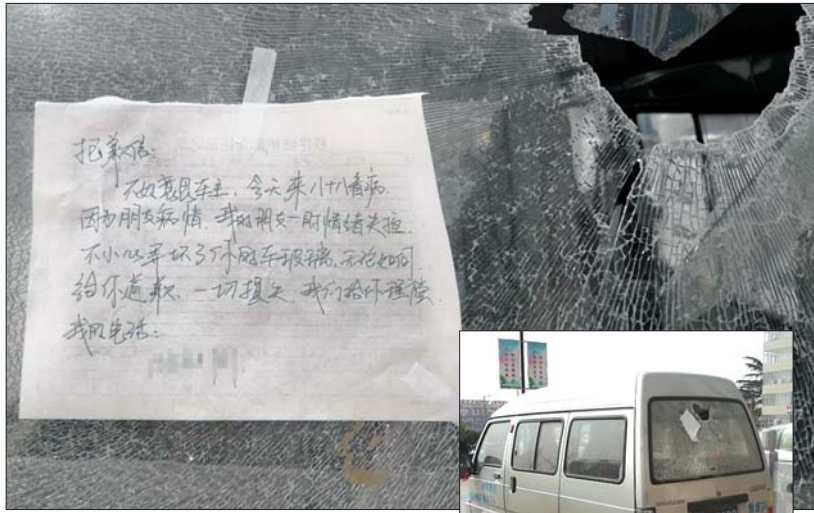 抱歉信：
不好意思车主，今天来八十八看病
因为朋友病情，我的朋友一时情绪失控
不小心弄坏了你的车玻璃，无论如何
给你道歉，一切损失，我们给你理赔
我的电话：